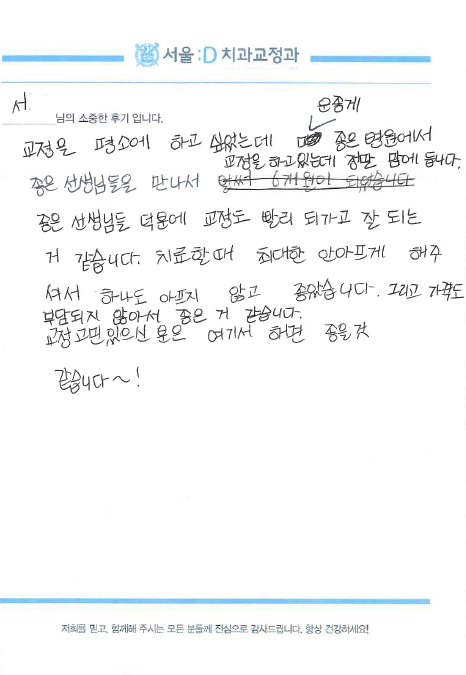 서울:D 치과교정과
서 님의 소중한 후기 입니다.
운좋게
교정을 평소에 하고 싶었는데 좋은 병원에서
교정을 하고있는데 정말 맘에 듭니다.
좋은 선생님들을 만나서 벌써 6개월이 되었습니다
좋은 선생님들 덕분에 교정도 빨리 되가고 잘 되는
거 같습니다. 치료할때 최대한 안아프게 해주
셔서 하나도 아프지 않고 좋았습니다. 그리고 가격도
부담되지 않아서 좋은 거 같습니다.
교정고민있으신 분은 여기서 하면 좋을것
같습니다~!
저희를 믿고, 함께해 주시는 모든 분들께 진심으로 감사드립니다. 항상 건강하세요!